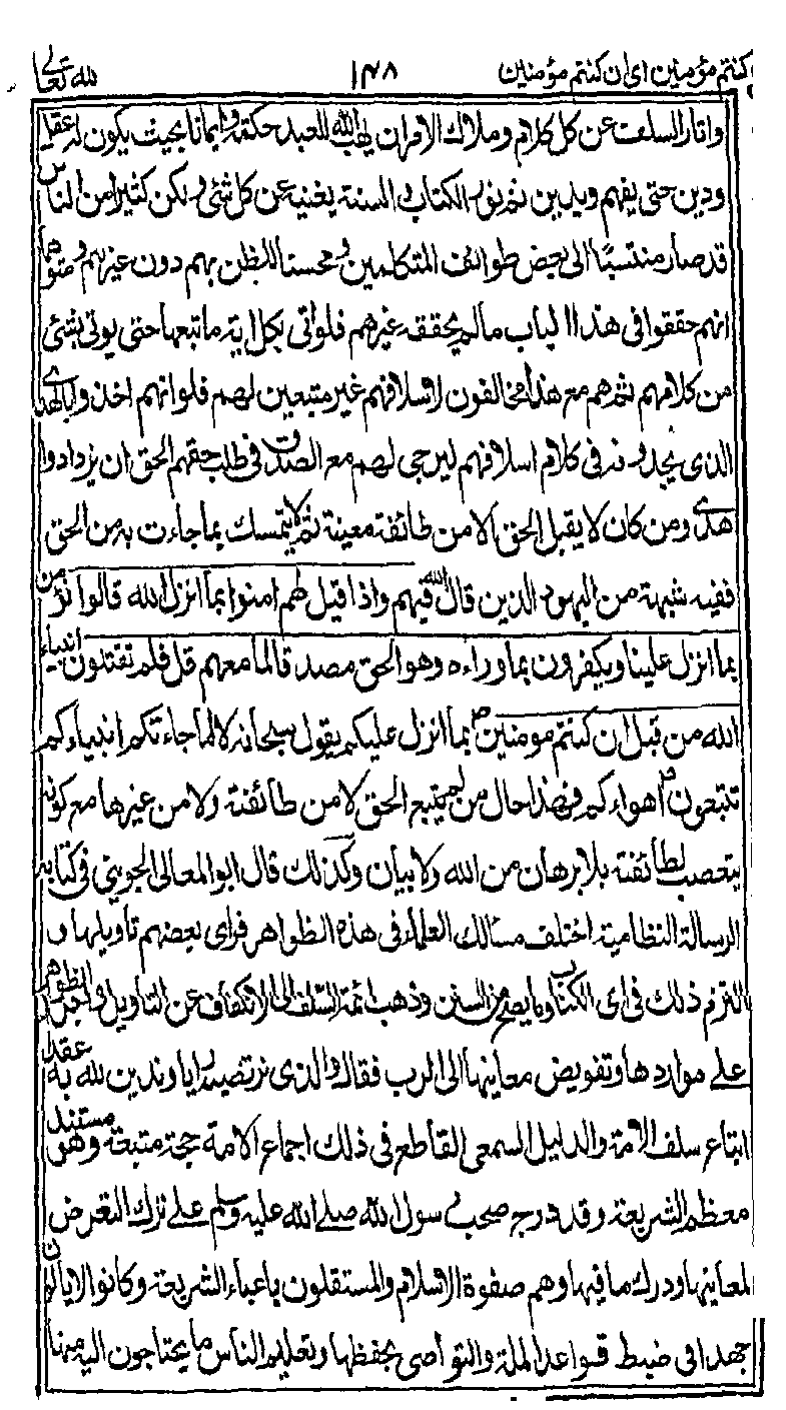 كنتم مؤمنين اى ان كنتم مؤمنين ١٤٨ لله تعالى
واثار السلف عن كل كلام وملاك الامران يهب الله للعبد حكمة وايمانا بحيث يكون له عقل
ودين حتى يفهم ويدين ثم نور الكتاب والسنة يغنيه عن كل شئ ولكن كثيرا من الناس
قد صار منتسبًا الى بعض طوائف المتكلمين ومحسنا للظن بهم دون غيرهم ومتوهما
انهم حققوا فى هذا الباب مالم يحققه غيرهم فلو اتى بكل اية ما تبعها حتى يوتى بشئ
من كلامهم ثم هم مع هذا مخالفون لاسلافهم غير متبعين لهم فلو انهم اخذوا بالهدى
الذى يجدونه فى كلام اسلافهم ليرجى لهم مع الصدق فى طلب حقهم الحق ان يزدادوا
هدى ومن كان لا يقبل الحق الا من طائفة معينة ثم لا يتمسك بما جاءت به من الحق
ففيه شبهة من اليهود الذين قال الله فيهم واذا قيل لهم امنوا بما انزل الله قالوا نؤمن
بما انزل علينا ويكفرون بما وراءه وهو الحق مصدقا لما معهم قل فلم تقتلون انبياء
الله من قبل ان كنتم مومنين بما انزل عليكم يقول سبحانه لا لما جاءتكم انبياءكم
تتبعون اهواءكم فهذا حال من لم يتبع الحق لا من طائفته ولا من غيرها مع كونه
يتعصب لطائفته بلا برهان من الله ولا بيان وكذلك قال ابو المعالى الجوينى فى كتابه
الرسالة النظامية اختلف مسالك العلماء فى هذه الظواهر فراى بعضهم تاويلها و
التزم ذلك فى اى الكتاب وما يصح من السنن وذهب ائمة السلف الى الانكفاف عن التاويل واجراء الظواهر
على مواردها وتفويض معانيها الى الرب فقال والذى نرتضيه رايا وندين لله به عقدا
اتباع سلف الامة والدليل السمعى القاطع فى ذلك اجماع الامة حجة متبعة وهو مستند
معظم الشريعة وقد درج صحب رسول الله صلى الله عليه وسلم على ترك التعرض
لمعانيها ودرك ما فيها وهم صفوة الاسلام والمستقلون باعباء الشريعة وكانوا لا يالون
جهدا فى ضبط قواعد الملة والتواصى بحفظها وتعليم الناس ما يحتاجون اليه منها